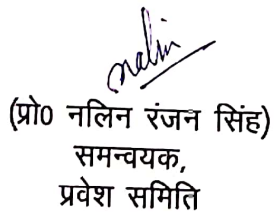 nalin
(प्रो0 नलिन रंजन सिंह)
समन्वयक,
प्रवेश समिति